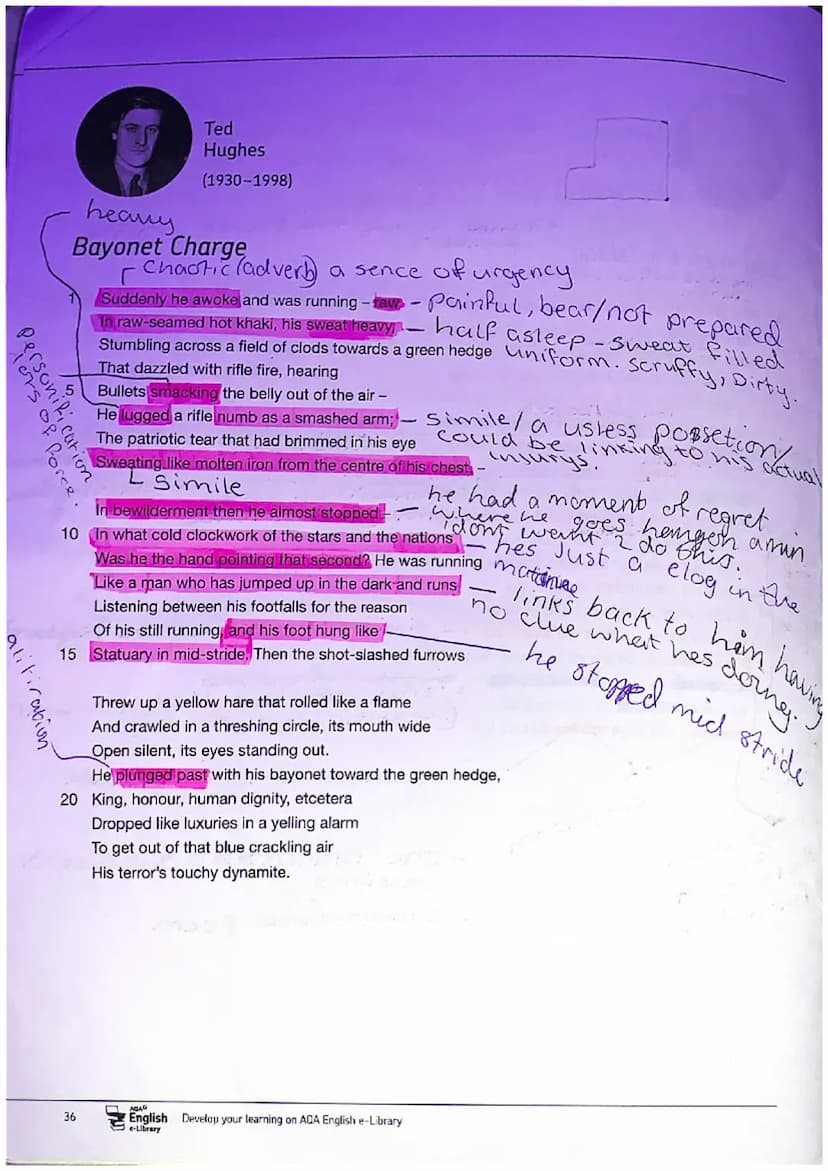 Ted
Hughes
(1930–1998)
heavy
Bayonet Charge
Chaotic (adverb) a sence of urgency
1 Suddenly he awoke and was running – raw - painful, bear/not prepared
In raw-seamed hot khaki, his sweat heavy, - half asleep - sweat filled
Stumbling across a field of clods towards a green hedge uniform. scruffy, Dirty.
That dazzled with rifle fire, hearing
5 Bullets smacking the belly out of the air –
personification
lots of force.
He lugged a rifle numb as a smashed arm; - Simile/ a usless possetion/
could be linking to his actual
injurys.
The patriotic tear that had brimmed in his eye
Sweating like molten iron from the centre of his chest, –
Simile
In bewilderment then he almost stopped – - he had a moment of regret
where he goes
'i dont want 2 do this.
10 In what cold clockwork of the stars and the nations - hes just a clog in the
Was he the hand pointing that second? He was running
Like a man who has jumped up in the dark and runs - links back to him having
no clue what hes doing.
Listening between his footfalls for the reason
Of his still running, and his foot hung like he stopped mid stride
15 Statuary in mid-stride. Then the shot-slashed furrows
Threw up a yellow hare that rolled like a flame
And crawled in a threshing circle, its mouth wide
Open silent, its eyes standing out.
alitiration
He plunged past with his bayonet toward the green hedge,
20 King, honour, human dignity, etcetera
Dropped like luxuries in a yelling alarm
To get out of that blue crackling air
His terror's touchy dynamite.
36
AQA
English
e-Library
Develop your learning on AQA English e-Library